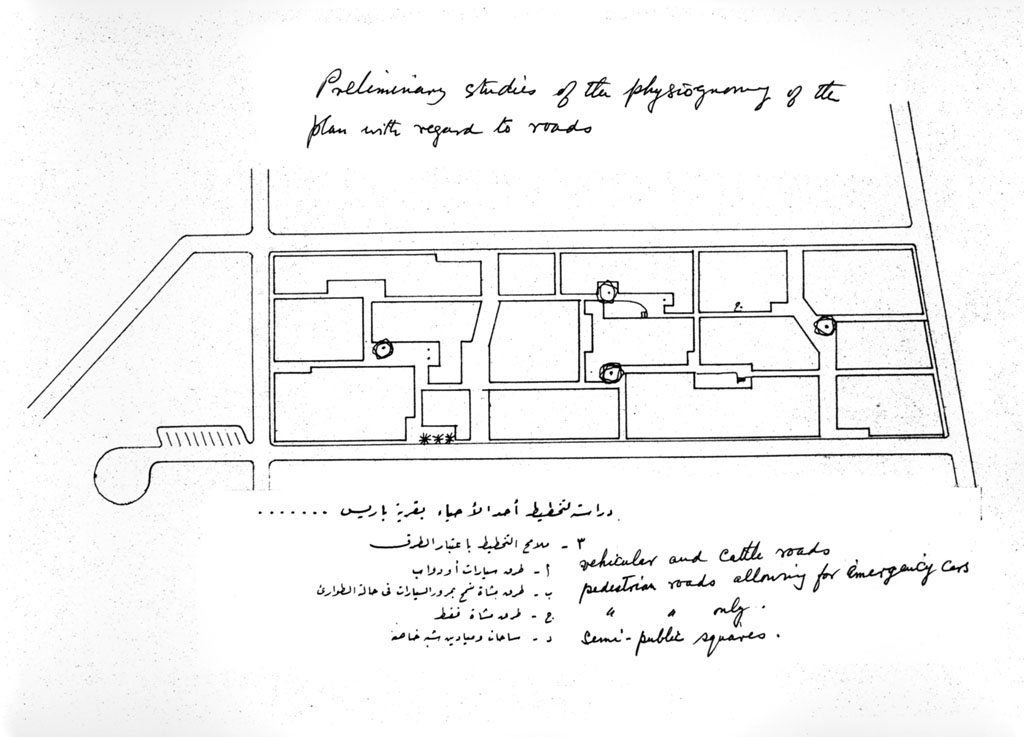 Preliminary studies of the physiognomy of the
plan with regard to roads
دراسات لتخطيط أحد الأحياء بقرية باريس .......
٣ - ملامح التخطيط باعتبار الطرق
أ - طرق سيارات أو دواب
vehicular and cattle roads
ب - طرق مشاة تسمح بمرور السيارات فى حالة الطوارئ
pedestrian roads allowing for emergency cars
ج - طرق مشاة فقط
" " only.
د - ساحات وميادين شبه خاصة
Semi-public squares.